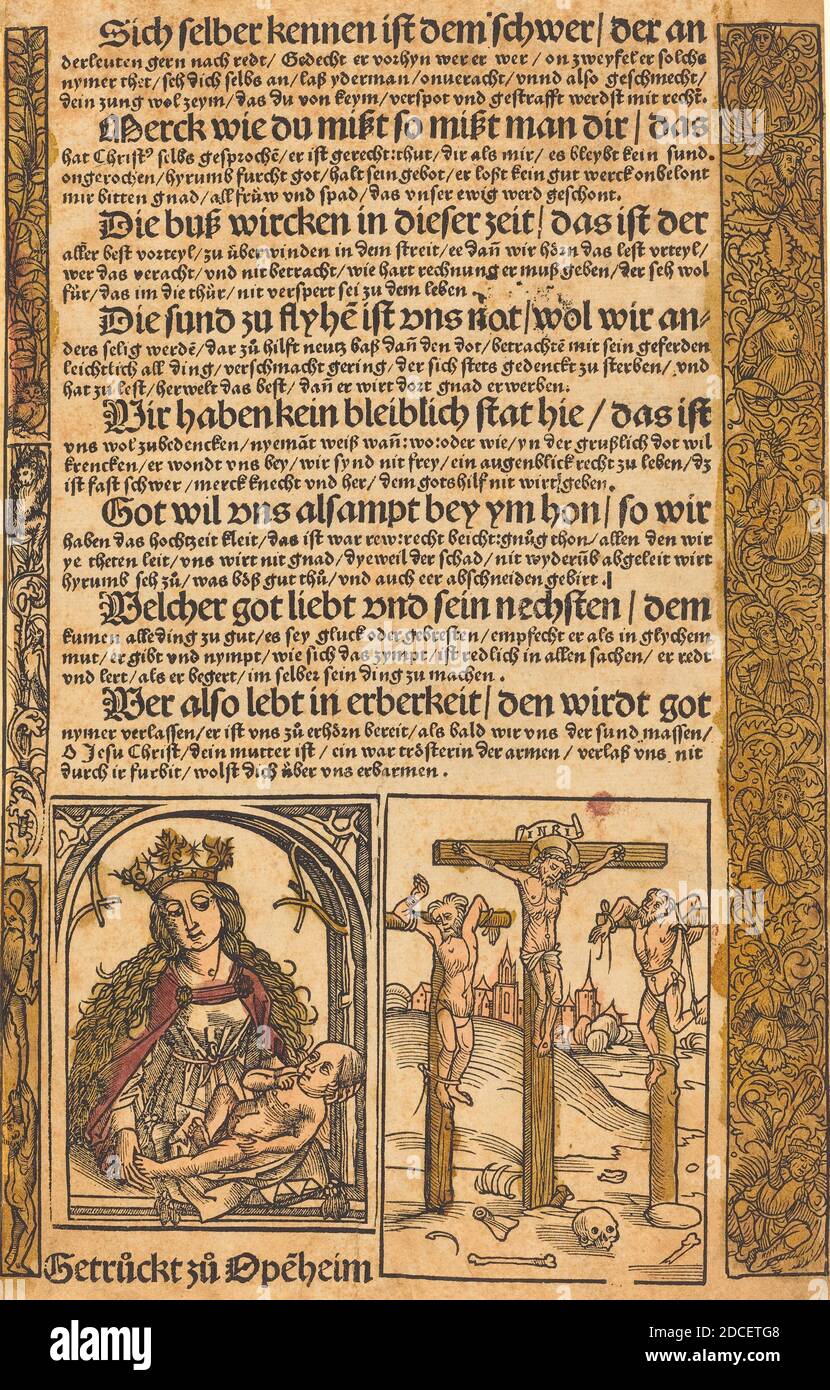 Sich selber kennen ist dem schwer / der an
derleuten gern nach redt / Gedecht er vorhyn wer er wer / on zweyfel er solchs
nymer thet / seh dich selbs an / laß yderman / onueracht / vnnd also geschmecht /
dein zung wol zeym / das du von keym / verspot vnd gestrafft werdst mit recht.
Merck wie du mißt so mißt man dir / das
hat Christꝰ selbs gesprochē / er ist gerecht : thut / dir als mir / es bleybt kein sund.
ongerochen / hyrumb furcht got / halt sein gebot / er loßt kein gut werck onbelont
mir bitten gnad / all früw vnd spad / das vnser ewig werd geschont.
Die buß wircken in dieser zeit / das ist der
aller best vorteyl / zu überwinden in dem streit / ee dañ wir hörn das lest vrteyl /
wer das veracht / vnd nit betracht / wie hart rechnung er muß geben / der seh wol
für / das im die thür / nit verspert sei zu dem leben
Die sund zu flyhē ist vns not / wol wir an-
ders selig werdē / dar zů hilft neutz baß dañ den dot / betrachtē mit sein geferden
leichtlich all ding / verschmacht gering / der sich stets gedenckt zu sterben / vnd
hat zu lest / her welt das best / dañ er wirt dort gnad erwerben.
Wir haben kein bleiblich stat hie / das ist
vns wol zubedencken / nyemāt weiß wañ : wo : oder wie / yn der grußlich dot wil
krencken / er wondt vns bey / wir synd nit frey / ein augenblick recht zu leben / dz
ist fast schwer / merck knecht vnd her / dem gots hilf nit wirt geben.
Got wil vns alsampt bey ym hon / so wir
haben das hochtzeit kleit / das ist war rew : recht beicht : gnůg thon / allen den wir
ye theten leit / vns wirt nit gnad / dyeweil der schad / nit wyderūb abgeleit wirt
hyrumb seh zů / was böß gut thů / vnd auch eer abschneiden gebirt.
Welcher got liebt vnd sein nechsten / dem
kumen alle ding zu gut / es sey gluck oder gebresten / empfecht er als in glychem
mut / er gibt vnd nympt / wie sich das zympt / ist redlich in allen sachen / er redt
vnd lert / als er begert / im selber sein ding zu machen.
Wer also lebt in erberkeit / den wirdt got
nymer verlassen / er ist vns zů erhörn bereit / als bald wir vns der sund massen /
O Jesu Christ / dein mutter ist / ein war trösterin der armen / verlaß vns nit
durch ir furbit / wolst dich über vns erbarmen.
INRI
Getrůckt zů Opēheim
alamy
Image ID: 2DCETG8
www.alamy.com